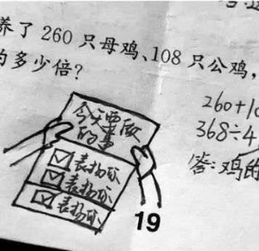 养了 260 只母鸡、108 只公鸡，
的多少倍？
260+10
368÷4
答：鸡的
今天要做
的事
表扬
表扬
表扬
19